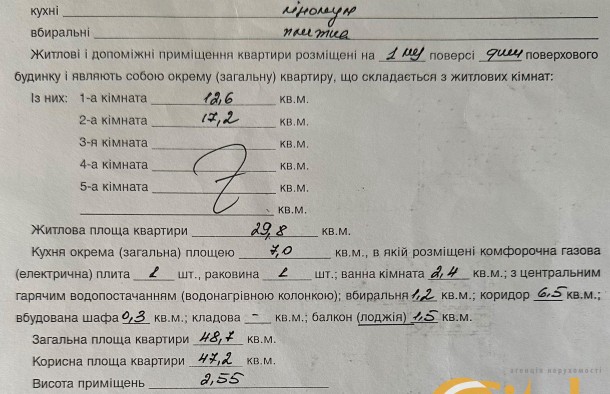 кухні лінолеум
вбиральні плитка
Житлові і допоміжні приміщення квартири розміщені на 1му поверсі поверхового
будинку і являють собою окрему (загальну) квартиру, що складається з житлових кімнат:
Із них: 1-а кімната 12,6 кв.м.
2-а кімната 17,2 кв.м.
3-я кімната кв.м.
4-а кімната кв.м.
5-а кімната кв.м.
кв.м.
Житлова площа квартири 29,8 кв.м.
Кухня окрема (загальна) площею 7,0 кв.м., в якій розміщені комфорочна газова
(електрична) плита 1 шт., раковина 1 шт.; ванна кімната 2,4 кв.м.; з центральним
гарячим водопостачанням (водонагрівною колонкою); вбиральня 1,2 кв.м.; коридор 6.5 кв.м.;
вбудована шафа 0,3 кв.м.; кладова - кв.м.; балкон (лоджія) 1,5 кв.м.
Загальна площа квартири 48,7 кв.м.
Корисна площа квартири 47,2 кв.м.
Висота приміщень 2,55
агенція нерухомості